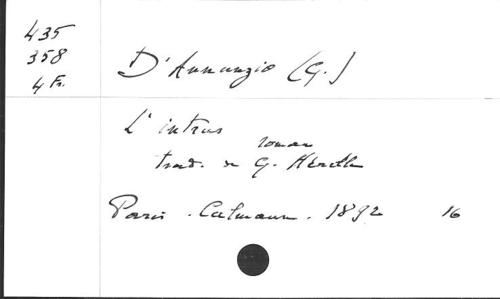 435
358
4 Fr.
D'Annunzio (G.)
L'intrus
roman
trad. de G. Hérelle
Paris. Calmann. 1892 16